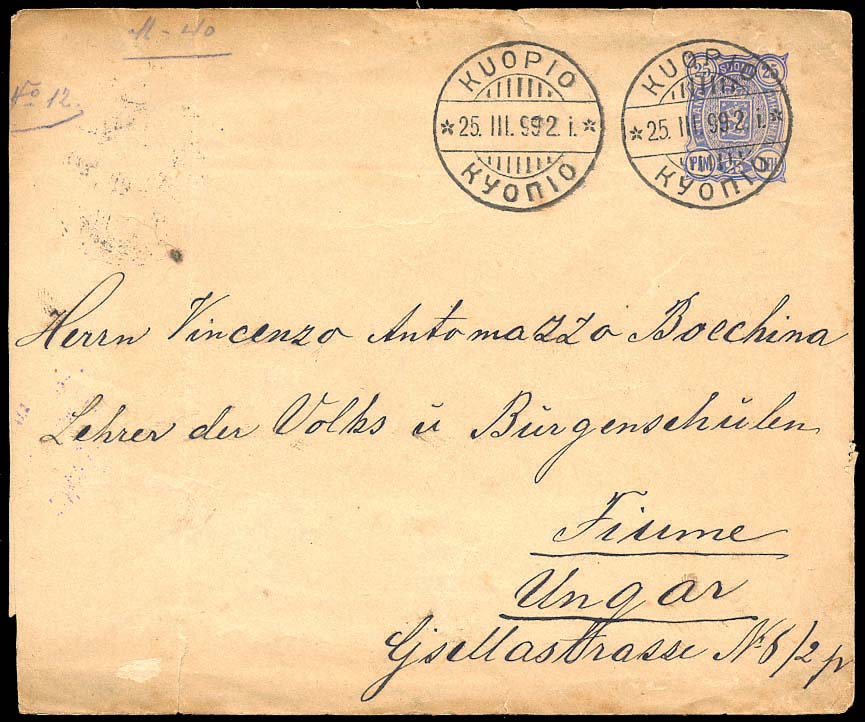 M - 40
No 12.
KUOPIO
25. III. 99 2. i.
КУОПІО
KUOPIO
25. III. 99 2. i.
КУОПІО
25 25
PEN
Herrn Vincenzo Antomazzo Bocchina
Lehrer der Volks ü Bürgenschülen
Fiume
Ungar
Gisellastrasse No 6/2 p